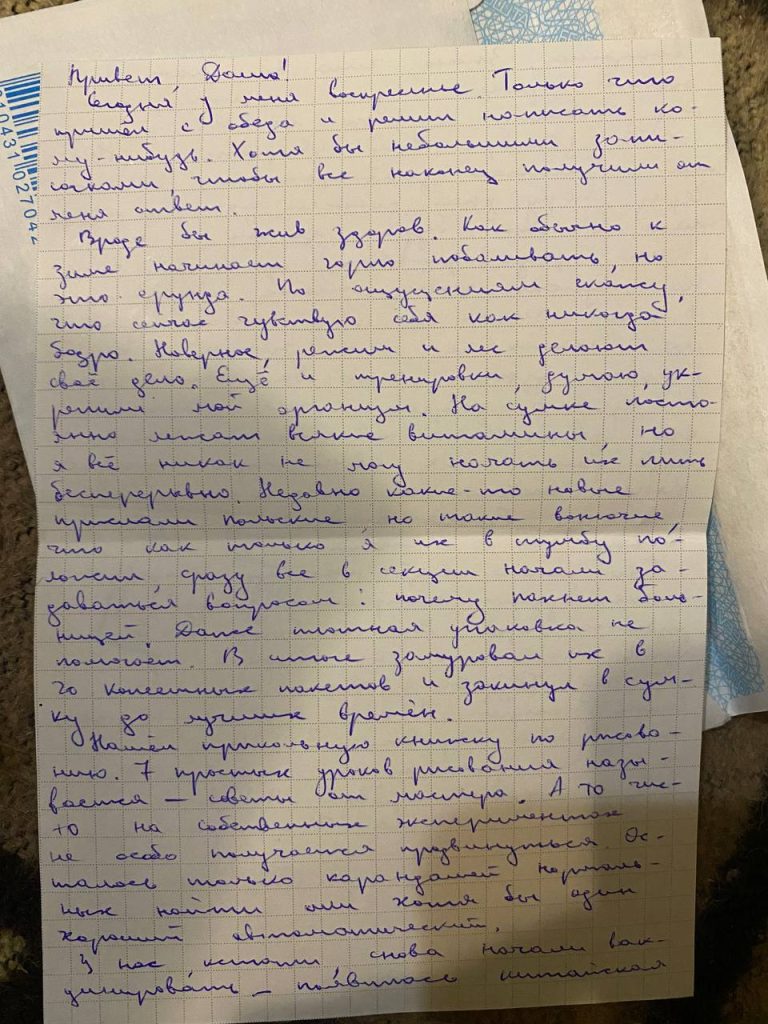 Привет, Даша!
Сегодня у меня воскресенье. Только что
пришёл с обеда и решил написать ко-
му-нибудь. Хотя бы небольшими запи-
сочками, чтобы все наконец получили от
меня ответ.
Вроде бы жив здоров. Как обычно к
зиме начинает горло побаливать, но
это ерунда. По ощущениям скажу,
что сейчас чувствую себя как никогда
бодро. Наверное, режим и лес делают
своё дело. Ещё и тренировки, думаю, ук-
репили мой организм. На сумке посто-
янно лежат всякие витамины, но
я всё никак не могу начать их пить
беспрерывно. Недавно какие-то новые
прислали польские, но такие вонючие
что как только я их в тумбу по-
ложил, сразу все в секции начали за-
даваться вопросом: почему пахнет боль-
ницей. Даже плотная упаковка не
помогает. В итоге замуровал их в
20 конеечных пакетов и закинул в сум-
ку до лучших времён.
Нашёл прикольную книжку по рисова-
нию. 7 простых уроков рисования назы-
вается – советы от мастера. А то чис-
то на собственных экспериментах
не особо получается продвинуться. Ос-
талось только карандашей нормаль-
ных найти или хотя бы один
хороший автоматический.
У нас кстати, снова начали вак-
цинировать – появилась китайская
210431027042